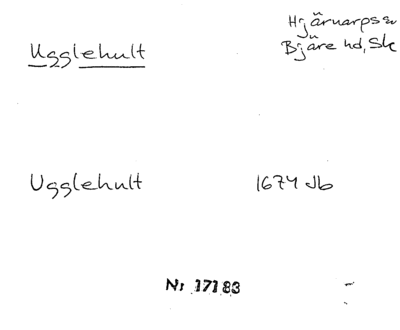 Ugglehult
Hjärnarps sn
Bjäre hd, Sk
Ugglehult 1674 Jb
Nr 17183